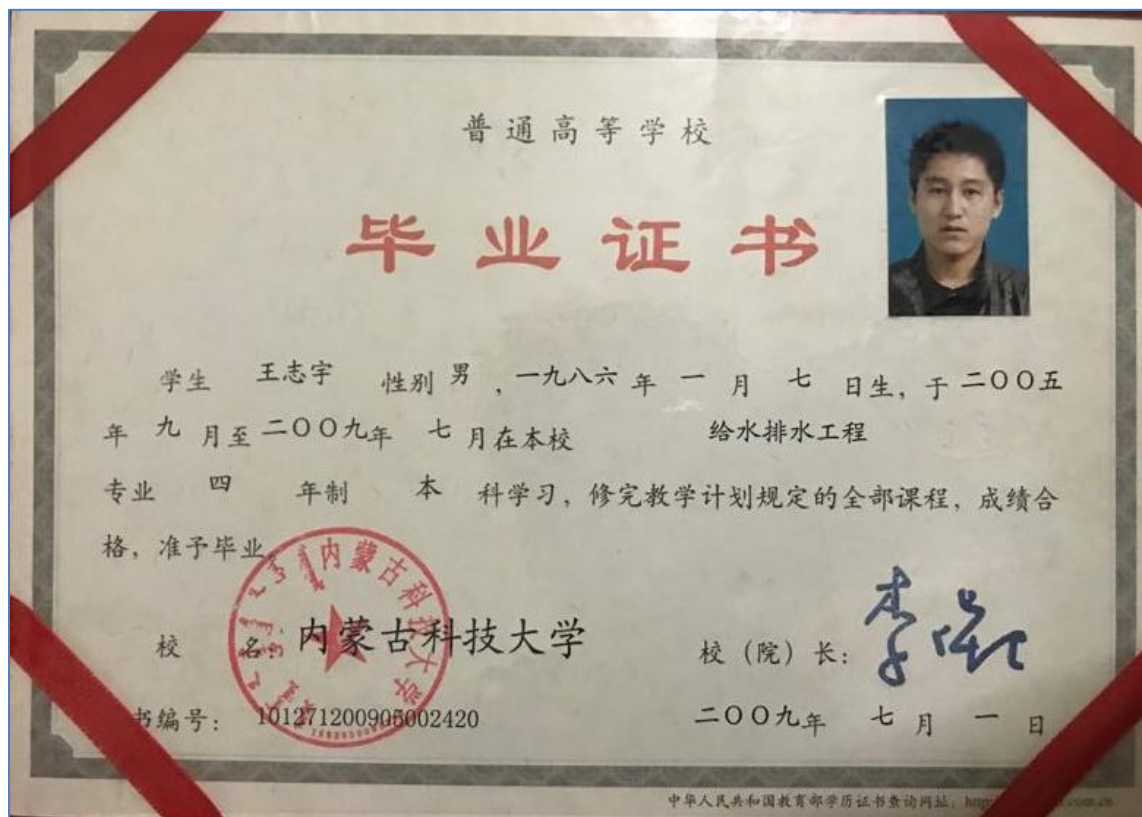 普通高等学校
毕业证书
学生 王志宇 性别 男 ，一九八六 年 一 月 七 日生，于 二〇〇五
年 九 月至 二〇〇九年 七 月在本校 给水排水工程
专业 四 年制 本 科学习，修完教学计划规定的全部课程，成绩合
格，准予毕业
内蒙古科技大学
校 名：内蒙古科技大学 校（院）长：
书编号：101271200905002420 二〇〇九年 七 月 一 日
中华人民共和国教育部学历证书查询网址：http com.cn